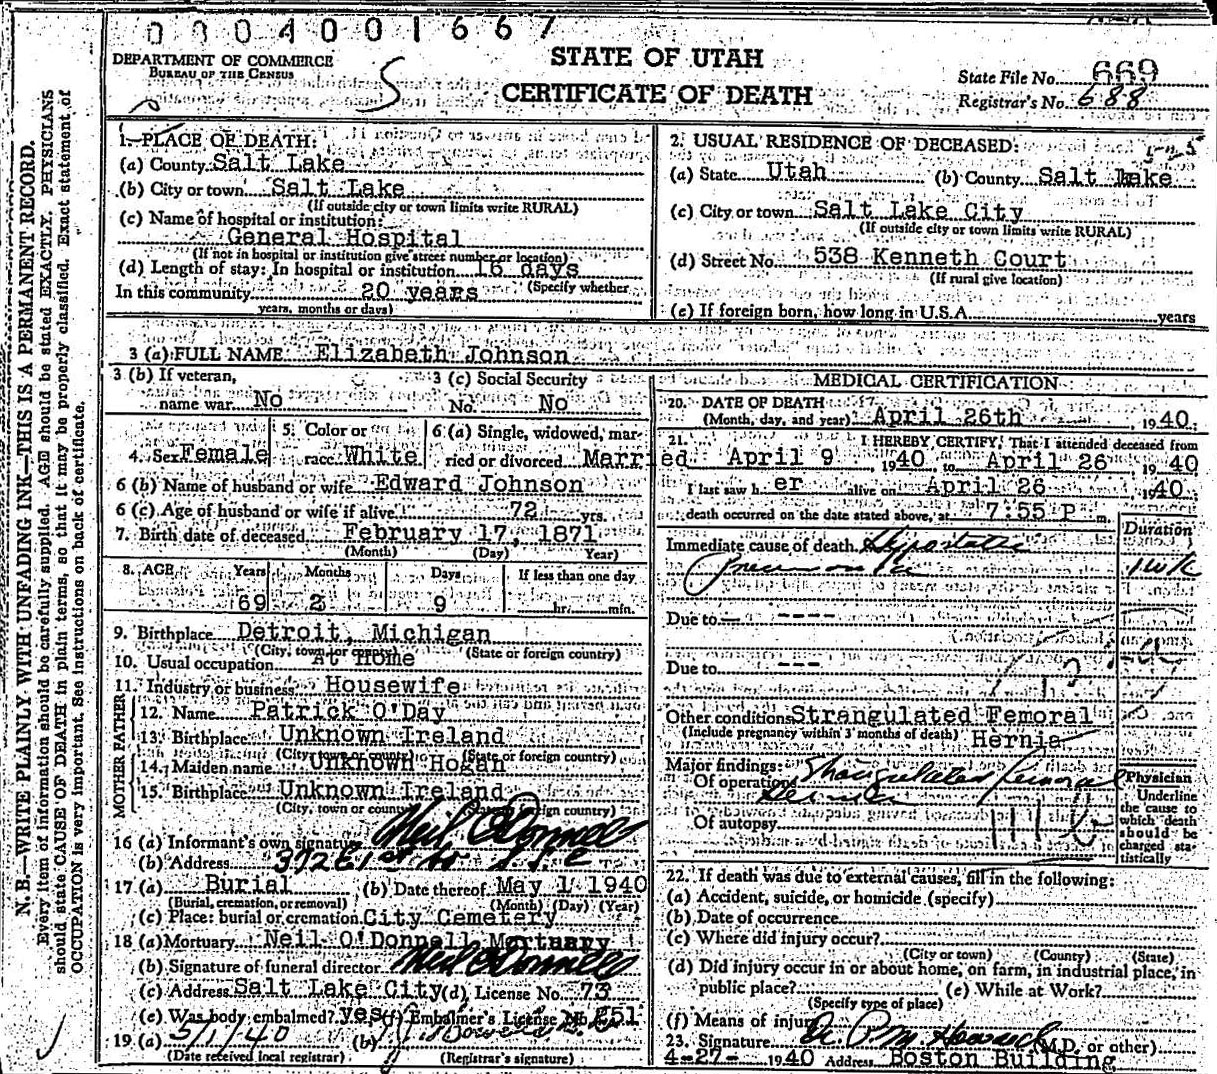 0004001667
DEPARTMENT OF COMMERCE
BUREAU OF THE CENSUS
STATE OF UTAH
CERTIFICATE OF DEATH
State File No. 669
Registrar's No. 688
N. B.—WRITE PLAINLY WITH UNFADING INK—THIS IS A PERMANENT RECORD.
Every item of information should be carefully supplied. AGE should be stated EXACTLY. PHYSICIANS
should state CAUSE OF DEATH in plain terms, so that it may be properly classified. Exact statement of
OCCUPATION is very important. See instructions on back of certificate.
1. PLACE OF DEATH:
(a) County Salt Lake
(b) City or town Salt Lake
(If outside city or town limits write RURAL)
(c) Name of hospital or institution:
General Hospital
(If not in hospital or institution give street number or location)
(d) Length of stay: In hospital or institution 16 days
(Specify whether
In this community 20 years
years, months or days)
2. USUAL RESIDENCE OF DECEASED:
(a) State Utah (b) County Salt Lake
(c) City or town Salt Lake City
(If outside city or town limits write RURAL)
(d) Street No. 538 Kenneth Court
(If rural give location)
(e) If foreign born, how long in U.S.A. years
3 (a) FULL NAME Elizabeth Johnson
3 (b) If veteran,
name war No
3 (c) Social Security
No. No
4. Sex Female
5. Color or
race White
6 (a) Single, widowed, mar-
ried or divorced Married
6 (b) Name of husband or wife Edward Johnson
6 (c) Age of husband or wife if alive 72 yrs.
7. Birth date of deceased February 17, 1871
(Month) (Day) Year)
8. AGE Years Months Days If less than one day
69 2 9 hr. min.
9. Birthplace Detroit, Michigan
(City, town or county) (State or foreign country)
10. Usual occupation At Home
11. Industry or business Housewife
FATHER
12. Name Patrick O'Day
13. Birthplace Unknown Ireland
(City, town or county) (State or foreign country)
MOTHER
14. Maiden name Unknown Hogan
15. Birthplace Unknown Ireland
(City, town or county) (State or foreign country)
16 (a) Informant's own signature Neil O'Donnell
(b) Address 372 E 1st So S L C
17 (a) Burial (b) Date thereof May 1 1940
(Burial, cremation, or removal) (Month) (Day) (Year)
(c) Place: burial or cremation City Cemetery
18 (a) Mortuary Neil O'Donnell Mortuary
(b) Signature of funeral director Neil O'Donnell
(c) Address Salt Lake City (d) License No. 73
(e) Was body embalmed? yes (f) Embalmer's License No. 251
19 (a) 5/1/40 (b)
(Date received local registrar) (Registrar's signature)
MEDICAL CERTIFICATION
20. DATE OF DEATH
(Month, day, and year) April 26th, 1940.
21. I HEREBY CERTIFY, That I attended deceased from
April 9, 1940 to April 26, 1940
I last saw her alive on April 26, 1940.;
death occurred on the date stated above, at 7:55 P m.
Duration
Immediate cause of death Hypostatic
Pneumonia 1 wk
Due to ---
Due to ---
Other conditions Strangulated Femoral
(Include pregnancy within 3 months of death) Hernia
Major findings:
Of operations Strangulated Femoral
Hernia
Of autopsy
Physician
Underline
the cause to
which death
should be
charged sta-
tistically
22. If death was due to external causes, fill in the following:
(a) Accident, suicide, or homicide (specify)
(b) Date of occurrence
(c) Where did injury occur?
(City or town) (County) (State)
(d) Did injury occur in or about home, on farm, in industrial place, in
public place? (e) While at Work?
(Specify type of place)
(f) Means of injury
23. Signature (M.D. or other)
4-27- 1940 Address Boston Building